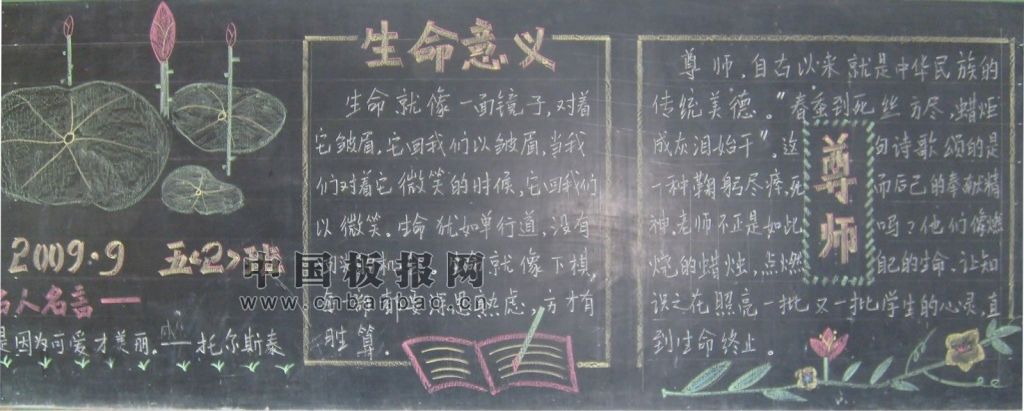 2009.9 五<2>班
名人名言一
是因为可爱才美丽。——托尔斯泰
生命意义
生命就像一面镜子,对着
它皱眉,它回我们以皱眉,当我
们对着它微笑的时候,它回我们
以微笑。生命犹如单行道,没有
就像下棋,
虑,方才有
胜算。
尊师
尊师,自古以来就是中华民族的
传统美德。"春蚕到死丝方尽,蜡炬
成灰泪始干",这句诗歌颂的是
一种鞠躬尽瘁,死而后己的奉献精
神。老师不正是如此吗?他们像燃
烧的蜡烛,点燃自己的生命,让知
识之花照亮一批又一批学生的心灵,直
到生命终止。
中国板报网
www.cnbanbao.cn